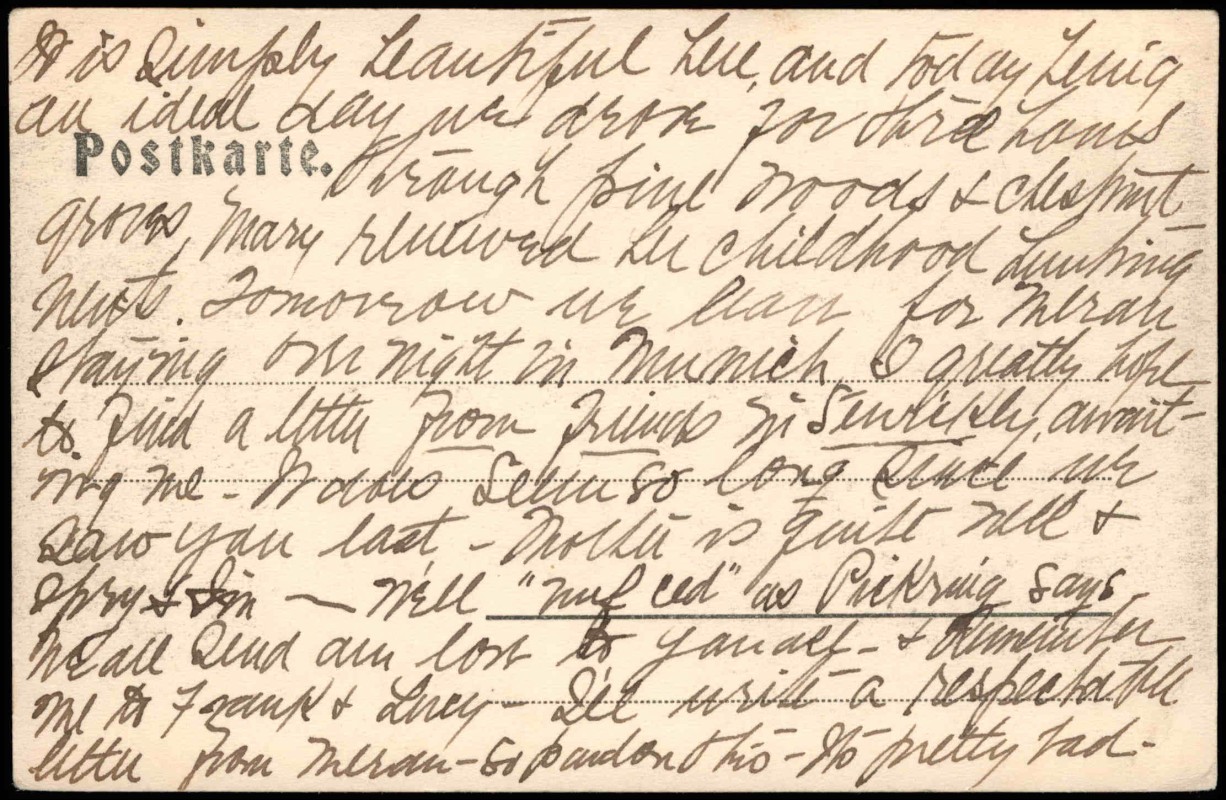 It is simply beautiful here, and today being
an ideal day we drove for three hours
Postkarte.
through pine woods & chestnut
groves, Mary renewed her childhood hunting
Tomorrow we leave for Meran
staying over night in Munich. I greatly hope
to find a letter from friends in Sewickley, await-
ing me - It does seem so long since we
saw you last - Mother is quite well &
spry & I'm — Well "nuf ced" as Pickring says
We all send our love to you all - & remember
me to Frank & Lucy - I'll write a respectable
letter from Meran - so pardon this - Its pretty bad -